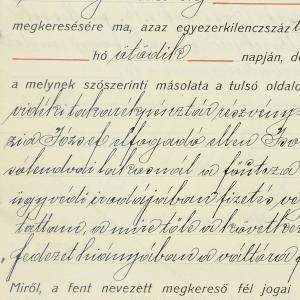 megkeresésére ma, azaz egyezerkilenczszáz
hó ötödik napján, de
a melynek szószerinti másolata a tulsó oldalo
vidéki takarékpénztár részvény
zia József elfogadó ellen
lakásnál a
ügyvédi irodájában fizetés vé
tattam, a mire tőle a következ
fedezet hiányában a váltóra
Miről, a fent nevezett megkereső fél jogai